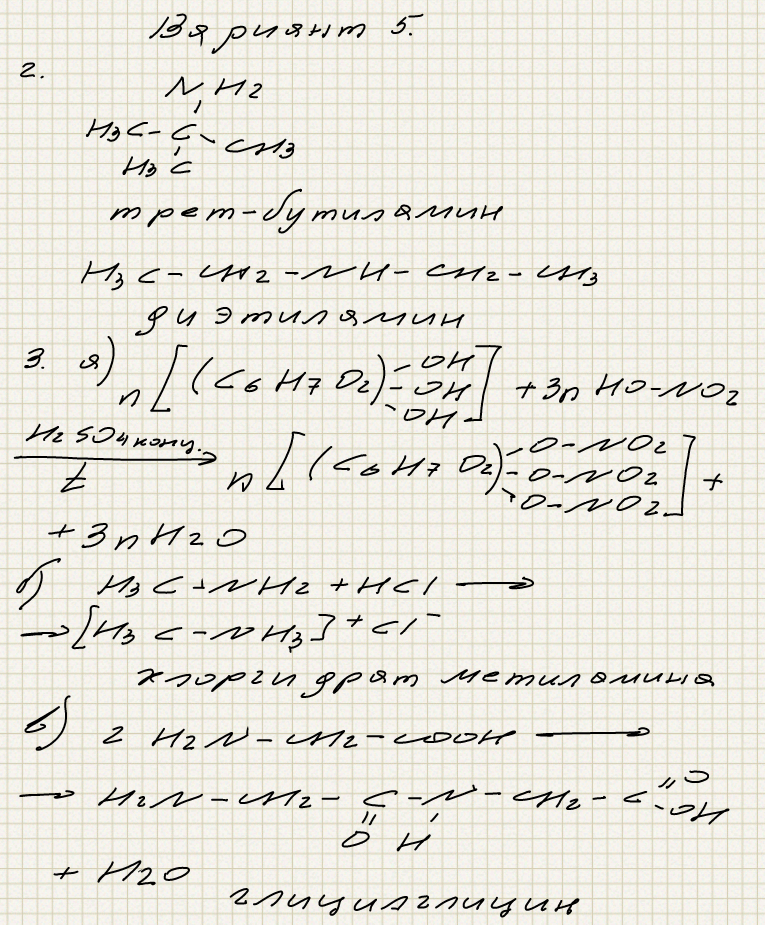 Вариант 5.
2.
NH2
H3C-C-CH3
H3C
трет-бутиламин
H3C-CH2-NH-CH2-CH3
диэтиламин
3. а) n[(C6H7O2)-OH -OH -OH] +3n HO-NO2
H2SO4 конц. t → n[(C6H7O2)-O-NO2 -O-NO2 -O-NO2] +
+ 3nH2O
б) H3C-NH2 + HCl →
→ [H3C-NH3]+Cl-
хлоргидрат метиламина
в) 2 H2N-CH2-COOH →
→ H2N-CH2-C-N-CH2-C=O -OH
=O H
+ H2O
глицилглицин